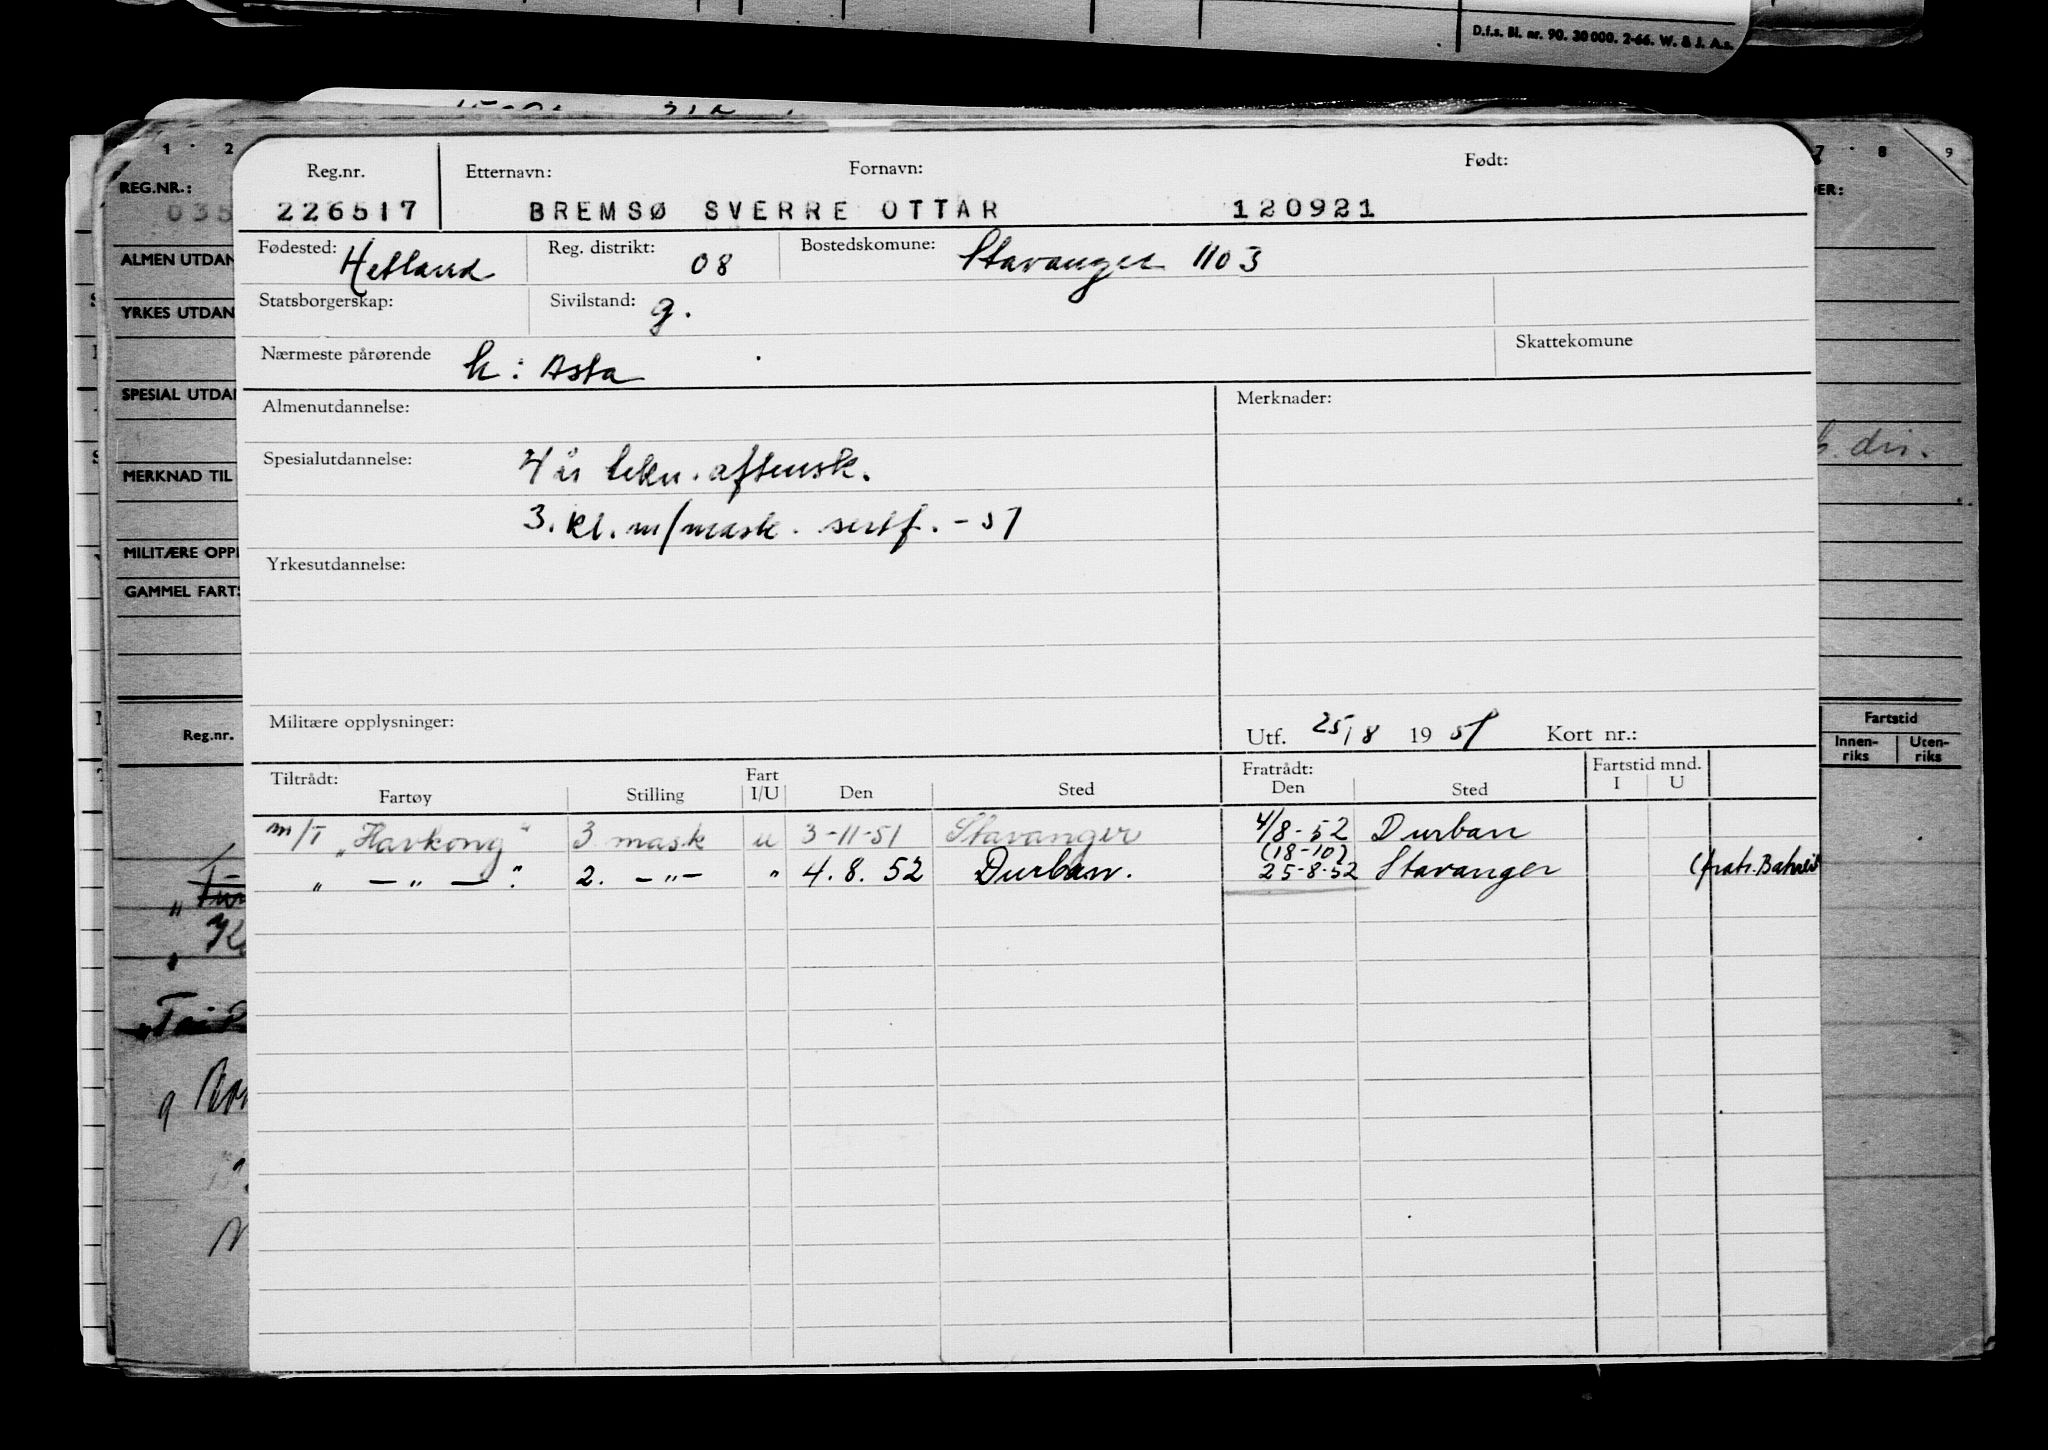 D.f.s. Bl. nr. 90. 30000. 2-66. W. & J. A.s.
1 2 7 8 9
REG.NR.:
035
ALMEN UTDAN
YRKES UTDAN
SPESIAL UTDAN
MERKNAD TIL
MILITÆRE OPPL
GAMMEL FARTS
Reg.nr.
DER:
div.
Fartstid
Innen-riks Uten-riks
Reg.nr. Etternavn: Fornavn: Født:
226517 BREMSØ SVERRE OTTAR 120921
Fødested: Hetland Reg. distrikt: 08 Bostedskomune: Stavanger 1103
Statsborgerskap: Sivilstand: g.
Nærmeste pårørende h: Asta Skattekomune
Almenutdannelse: Merknader:
Spesialutdannelse: 4 år tekn. aftensk.
3. kl. m/mask. sertf. - 51
Yrkesutdannelse:
Militære opplysninger: Utf. 25/8 1951 Kort nr.:
Tiltrådt: Fart Fratrådt: Fartstid mnd.
Fartøy Stilling I/U Den Sted Den Sted I U
m/T "Havkong" 3 mask u 3-11-51 Stavanger 4/8-52 Durban
(18-10)
" — " — " 2. — " — " 4.8.52 Durban. 25-8-52 Stavanger (fratr. Bahrein